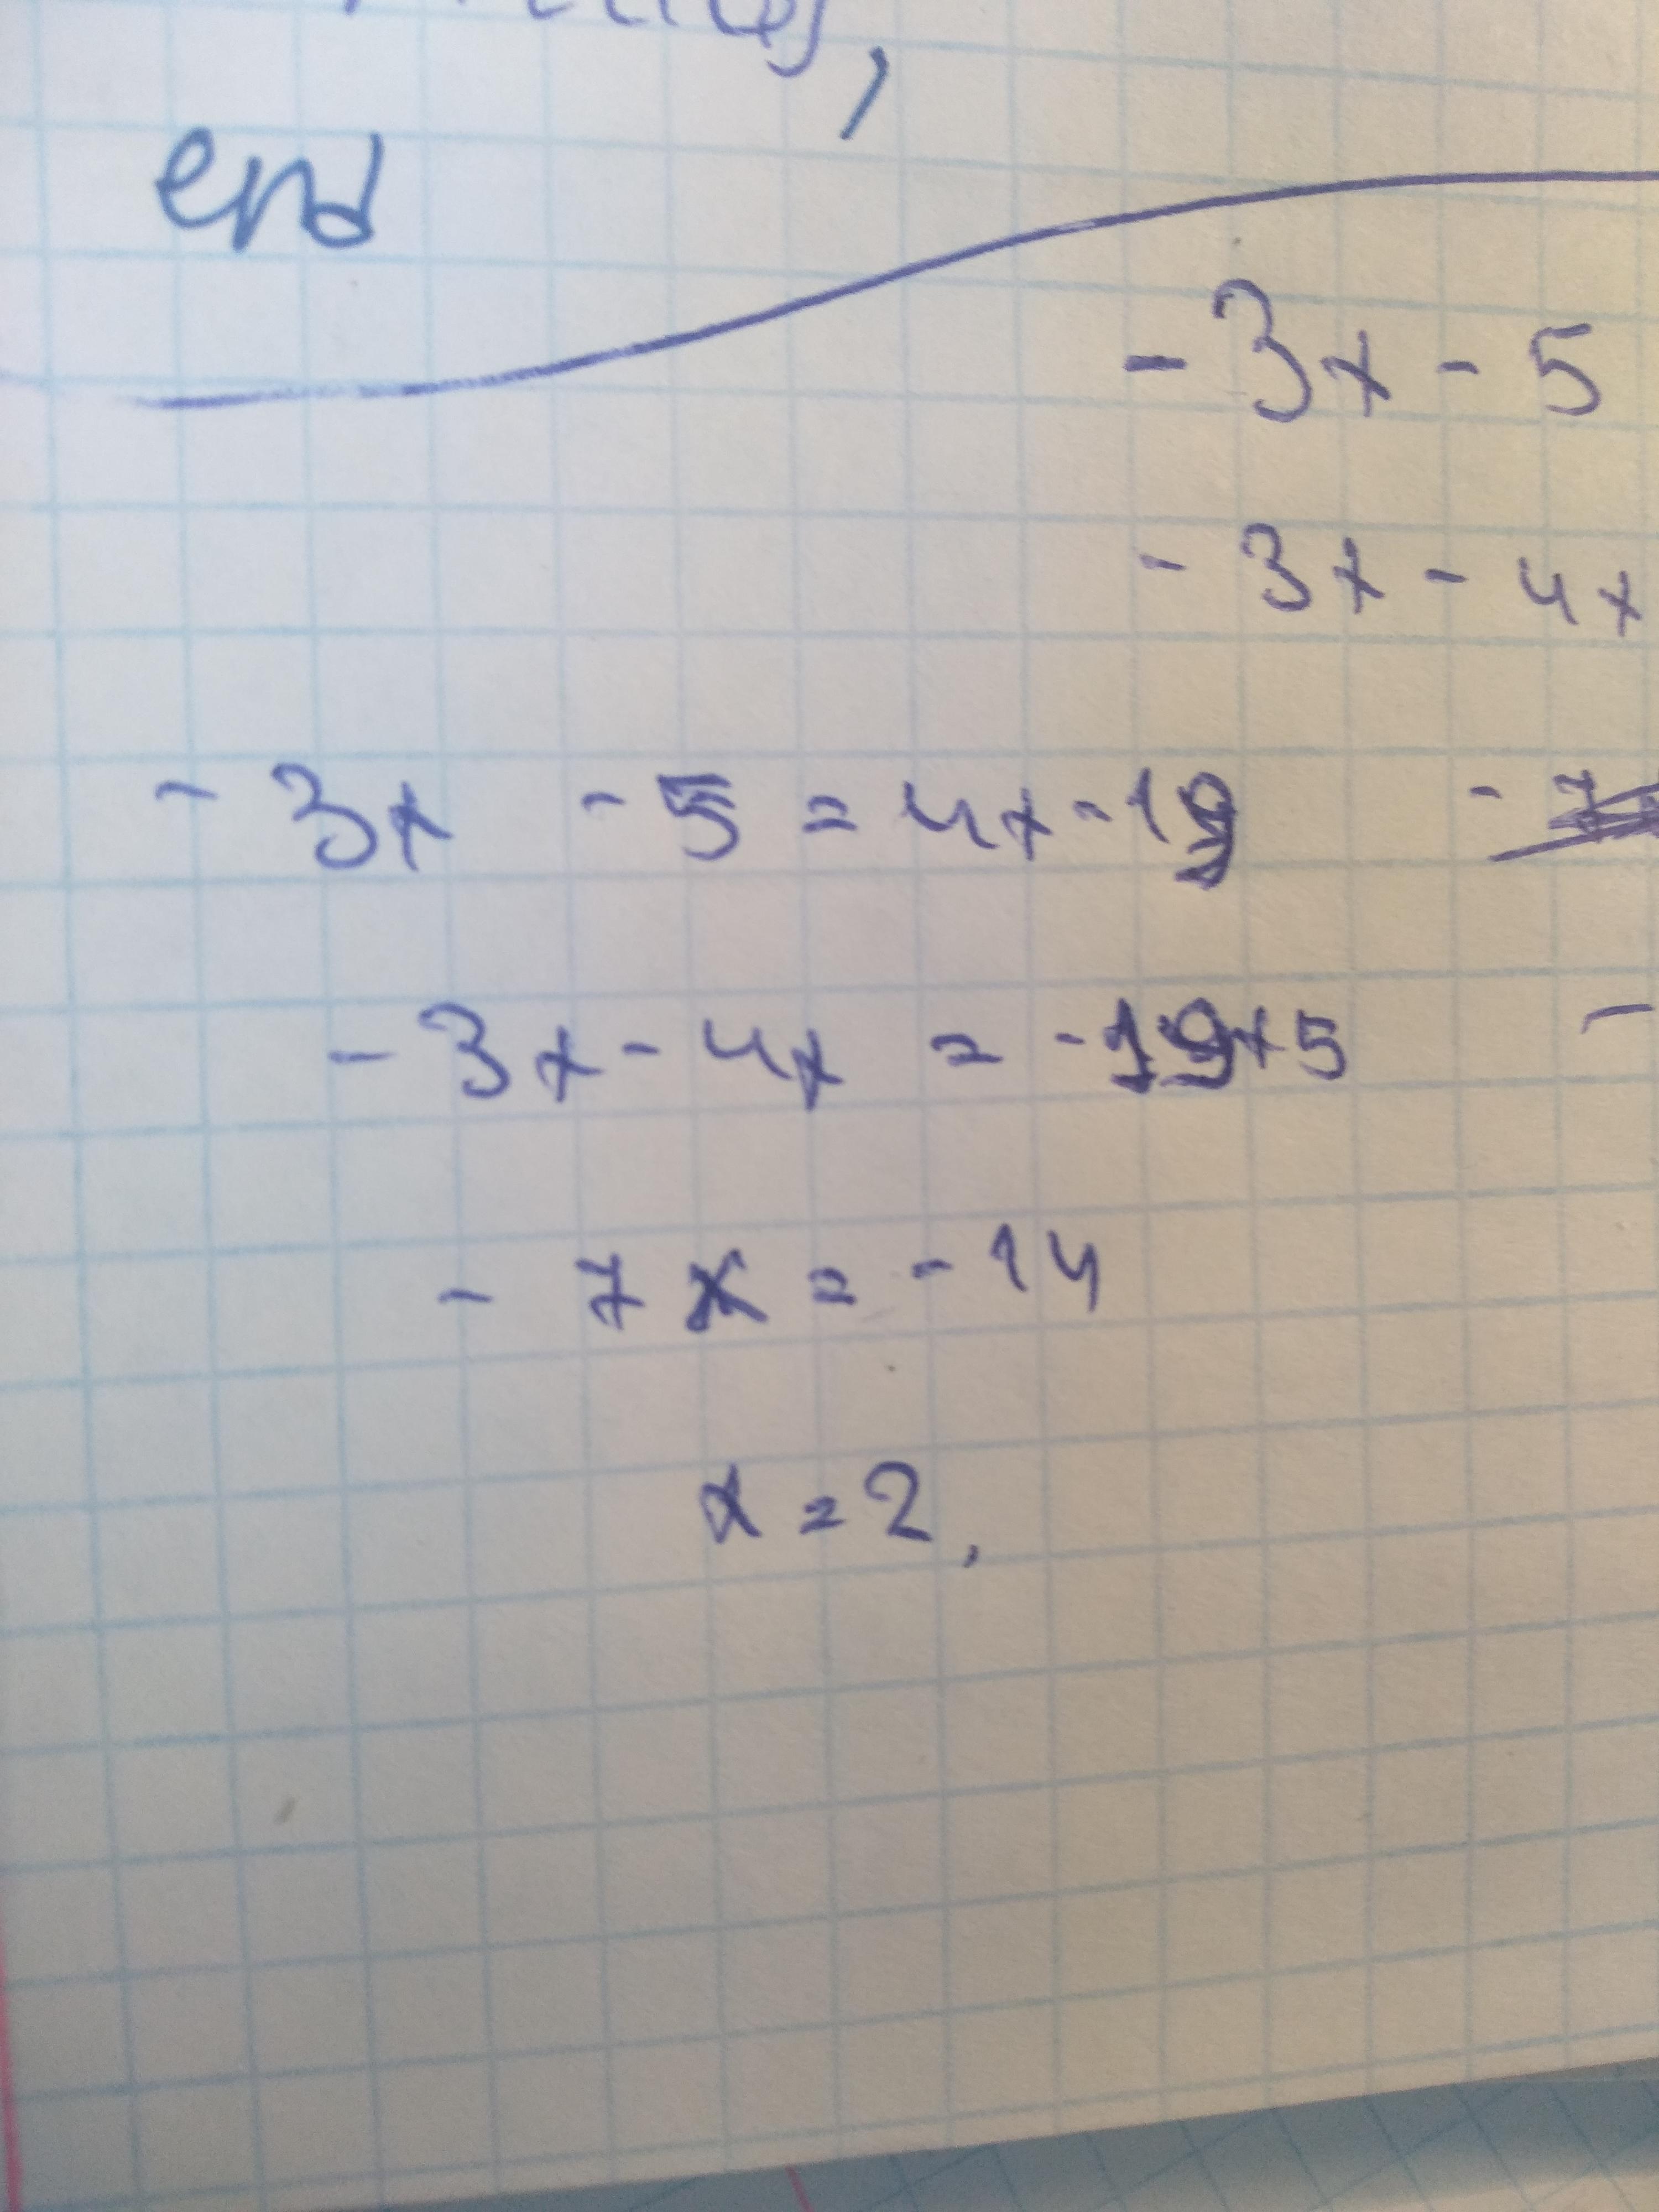 end
- 3x - 5
- 3x - 4x
- 3x - 5 = 4x - 19
- 3x - 4x = - 19 + 5
- 7x = - 14
x = 2,